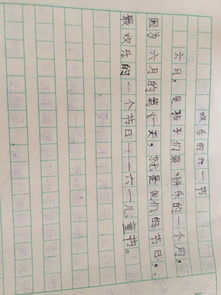 欢乐的六一节
六月，是孩子们最快乐的一个月，
因为六月的第一天，就是我们的节日，
最欢乐的一个节日——六一儿童节。